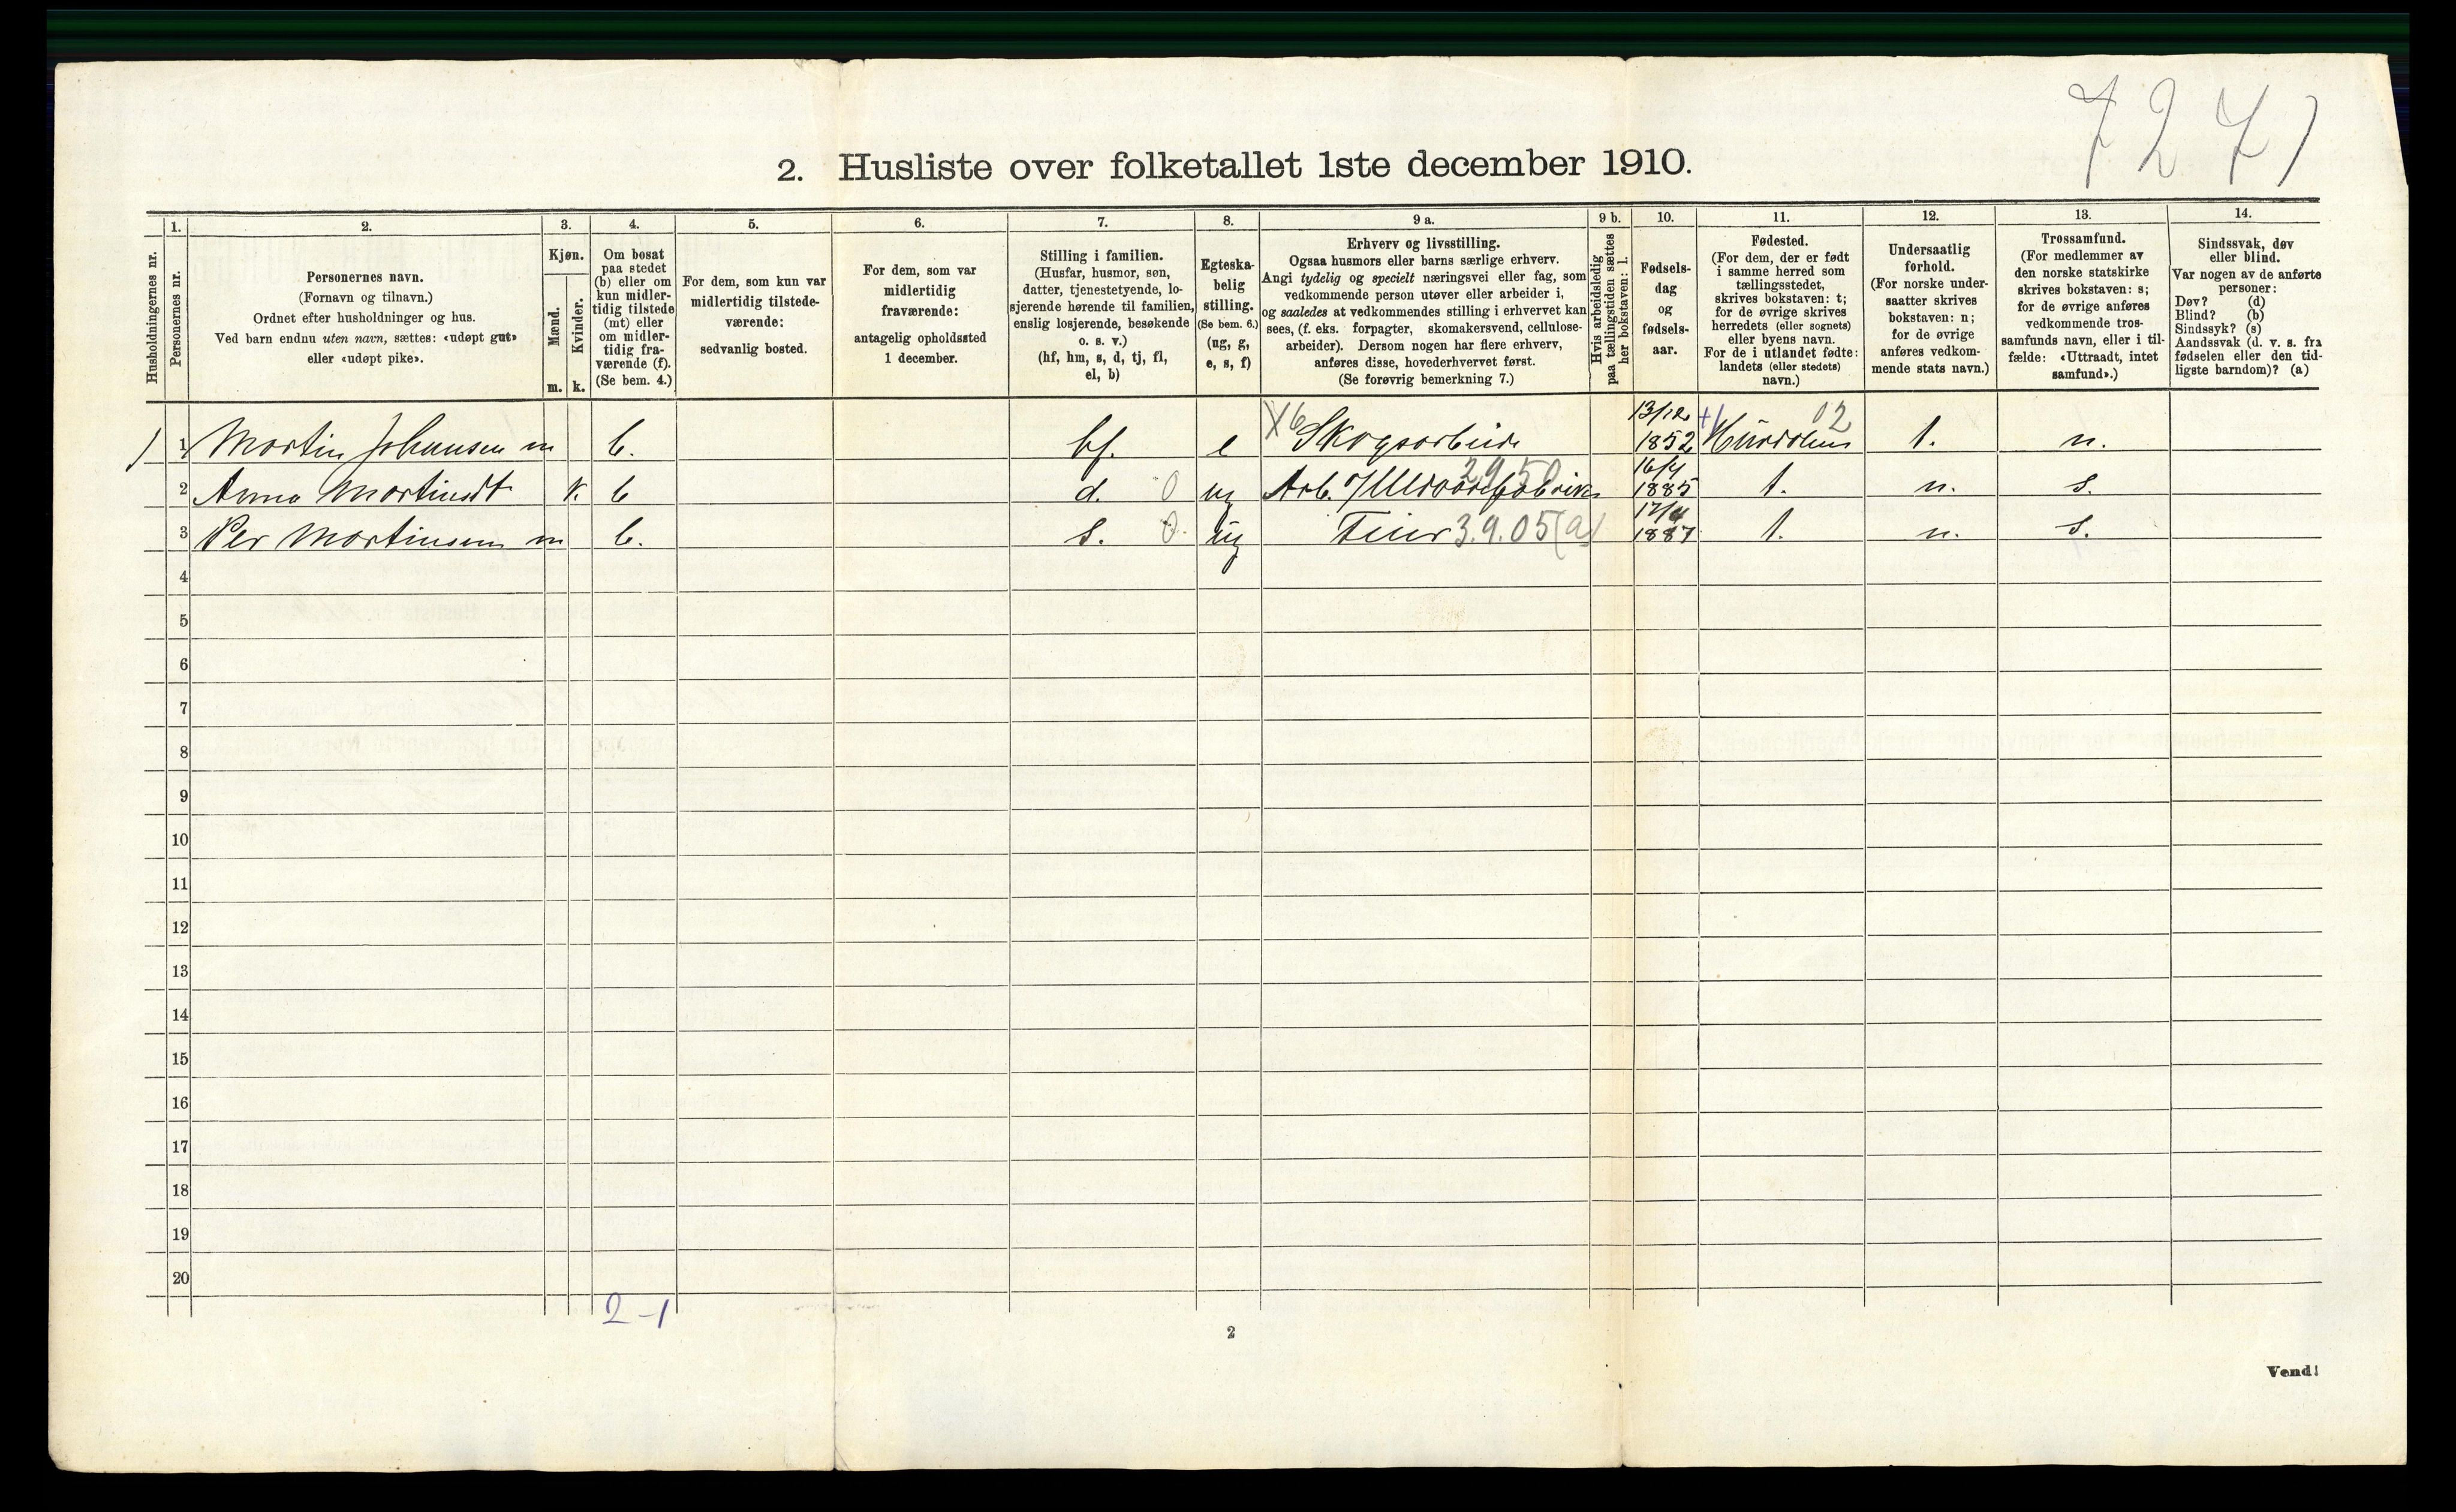 7 2 4 1
2. Husliste over folketallet 1ste december 1910.
Husholdningernes nr.
1.
Personernes nr.
2.
Personernes navn.
(Fornavn og tilnavn.)
Ordnet efter husholdninger og hus.
Ved barn endnu uten navn, sættes: «udøpt gut»
eller «udøpt pike».
3.
Kjøn.
Mænd.
Kvinder.
m. k.
4.
Om bosat
paa stedet
(b) eller om
kun midler-
tidig tilstede
(mt) eller
om midler-
tidig fra-
værende (f).
(Se bem. 4.)
5.
For dem, som kun var
midlertidig tilstede-
værende:
sedvanlig bosted.
6.
For dem, som var
midlertidig
fraværende:
antagelig opholdssted
1 december.
7.
Stilling i familien.
(Husfar, husmor, søn,
datter, tjenestetyende, lo-
sjerende hørende til familien,
enslig losjerende, besøkende
o. s. v.)
(hf, hm, s, d, tj, fl,
el, b)
8.
Egteska-
belig
stilling.
(Se bem. 6.)
(ug, g,
e, s, f)
9 a.
Erhverv og livsstilling.
Ogsaa husmors eller barns særlige erhverv.
Angi tydelig og specielt næringsvei eller fag, som
vedkommende person utøver eller arbeider i,
og saaledes at vedkommendes stilling i erhvervet kan
sees, (f. eks. forpagter, skomakersvend, cellulose-
arbeider). Dersom nogen har flere erhverv,
anføres disse, hovederhvervet først.
(Se forøvrig bemerkning 7.)
9 b.
Hvis arbeidsledig
paa tællingstiden sættes
her bokstaven: l.
10.
Fødsels-
dag
og
fødsels-
aar.
11.
Fødested.
(For dem, der er født
i samme herred som
tællingsstedet,
skrives bokstaven: t;
for de øvrige skrives
herredets (eller sognets)
eller byens navn.
For de i utlandet fødte:
landets (eller stedets)
navn.)
12.
Undersaatlig
forhold.
(For norske under-
saatter skrives
bokstaven: n;
for de øvrige
anføres vedkom-
mende stats navn.)
13.
Trossamfund.
(For medlemmer av
den norske statskirke
skrives bokstaven: s;
for de øvrige anføres
vedkommende tros-
samfunds navn, eller i til-
fælde: «Uttraadt, intet
samfund».)
14.
Sindssvak, døv
eller blind.
Var nogen av de anførte
personer:
Døv? (d)
Blind? (b)
Sindssyk? (s)
Aandssvak (d. v. s. fra
fødselen eller den tid-
ligste barndom)? (a)
1 Martin Johansen m b. hf. e Skogsarbeide 13/12 1852 Hurdalen 02 t. n.
2 Anna Martinsdt k. b d. 0 ug Arb. 29 50 16/4 1885 t. n. s.
3 Per Martinsen m b. s. 0. ug Feier 3.9.05(a) 1887 t. n. s.
4
5
6
7
8
9
10
11
12
13
14
15
16
17
18
19
20
2-1
2
Vend!